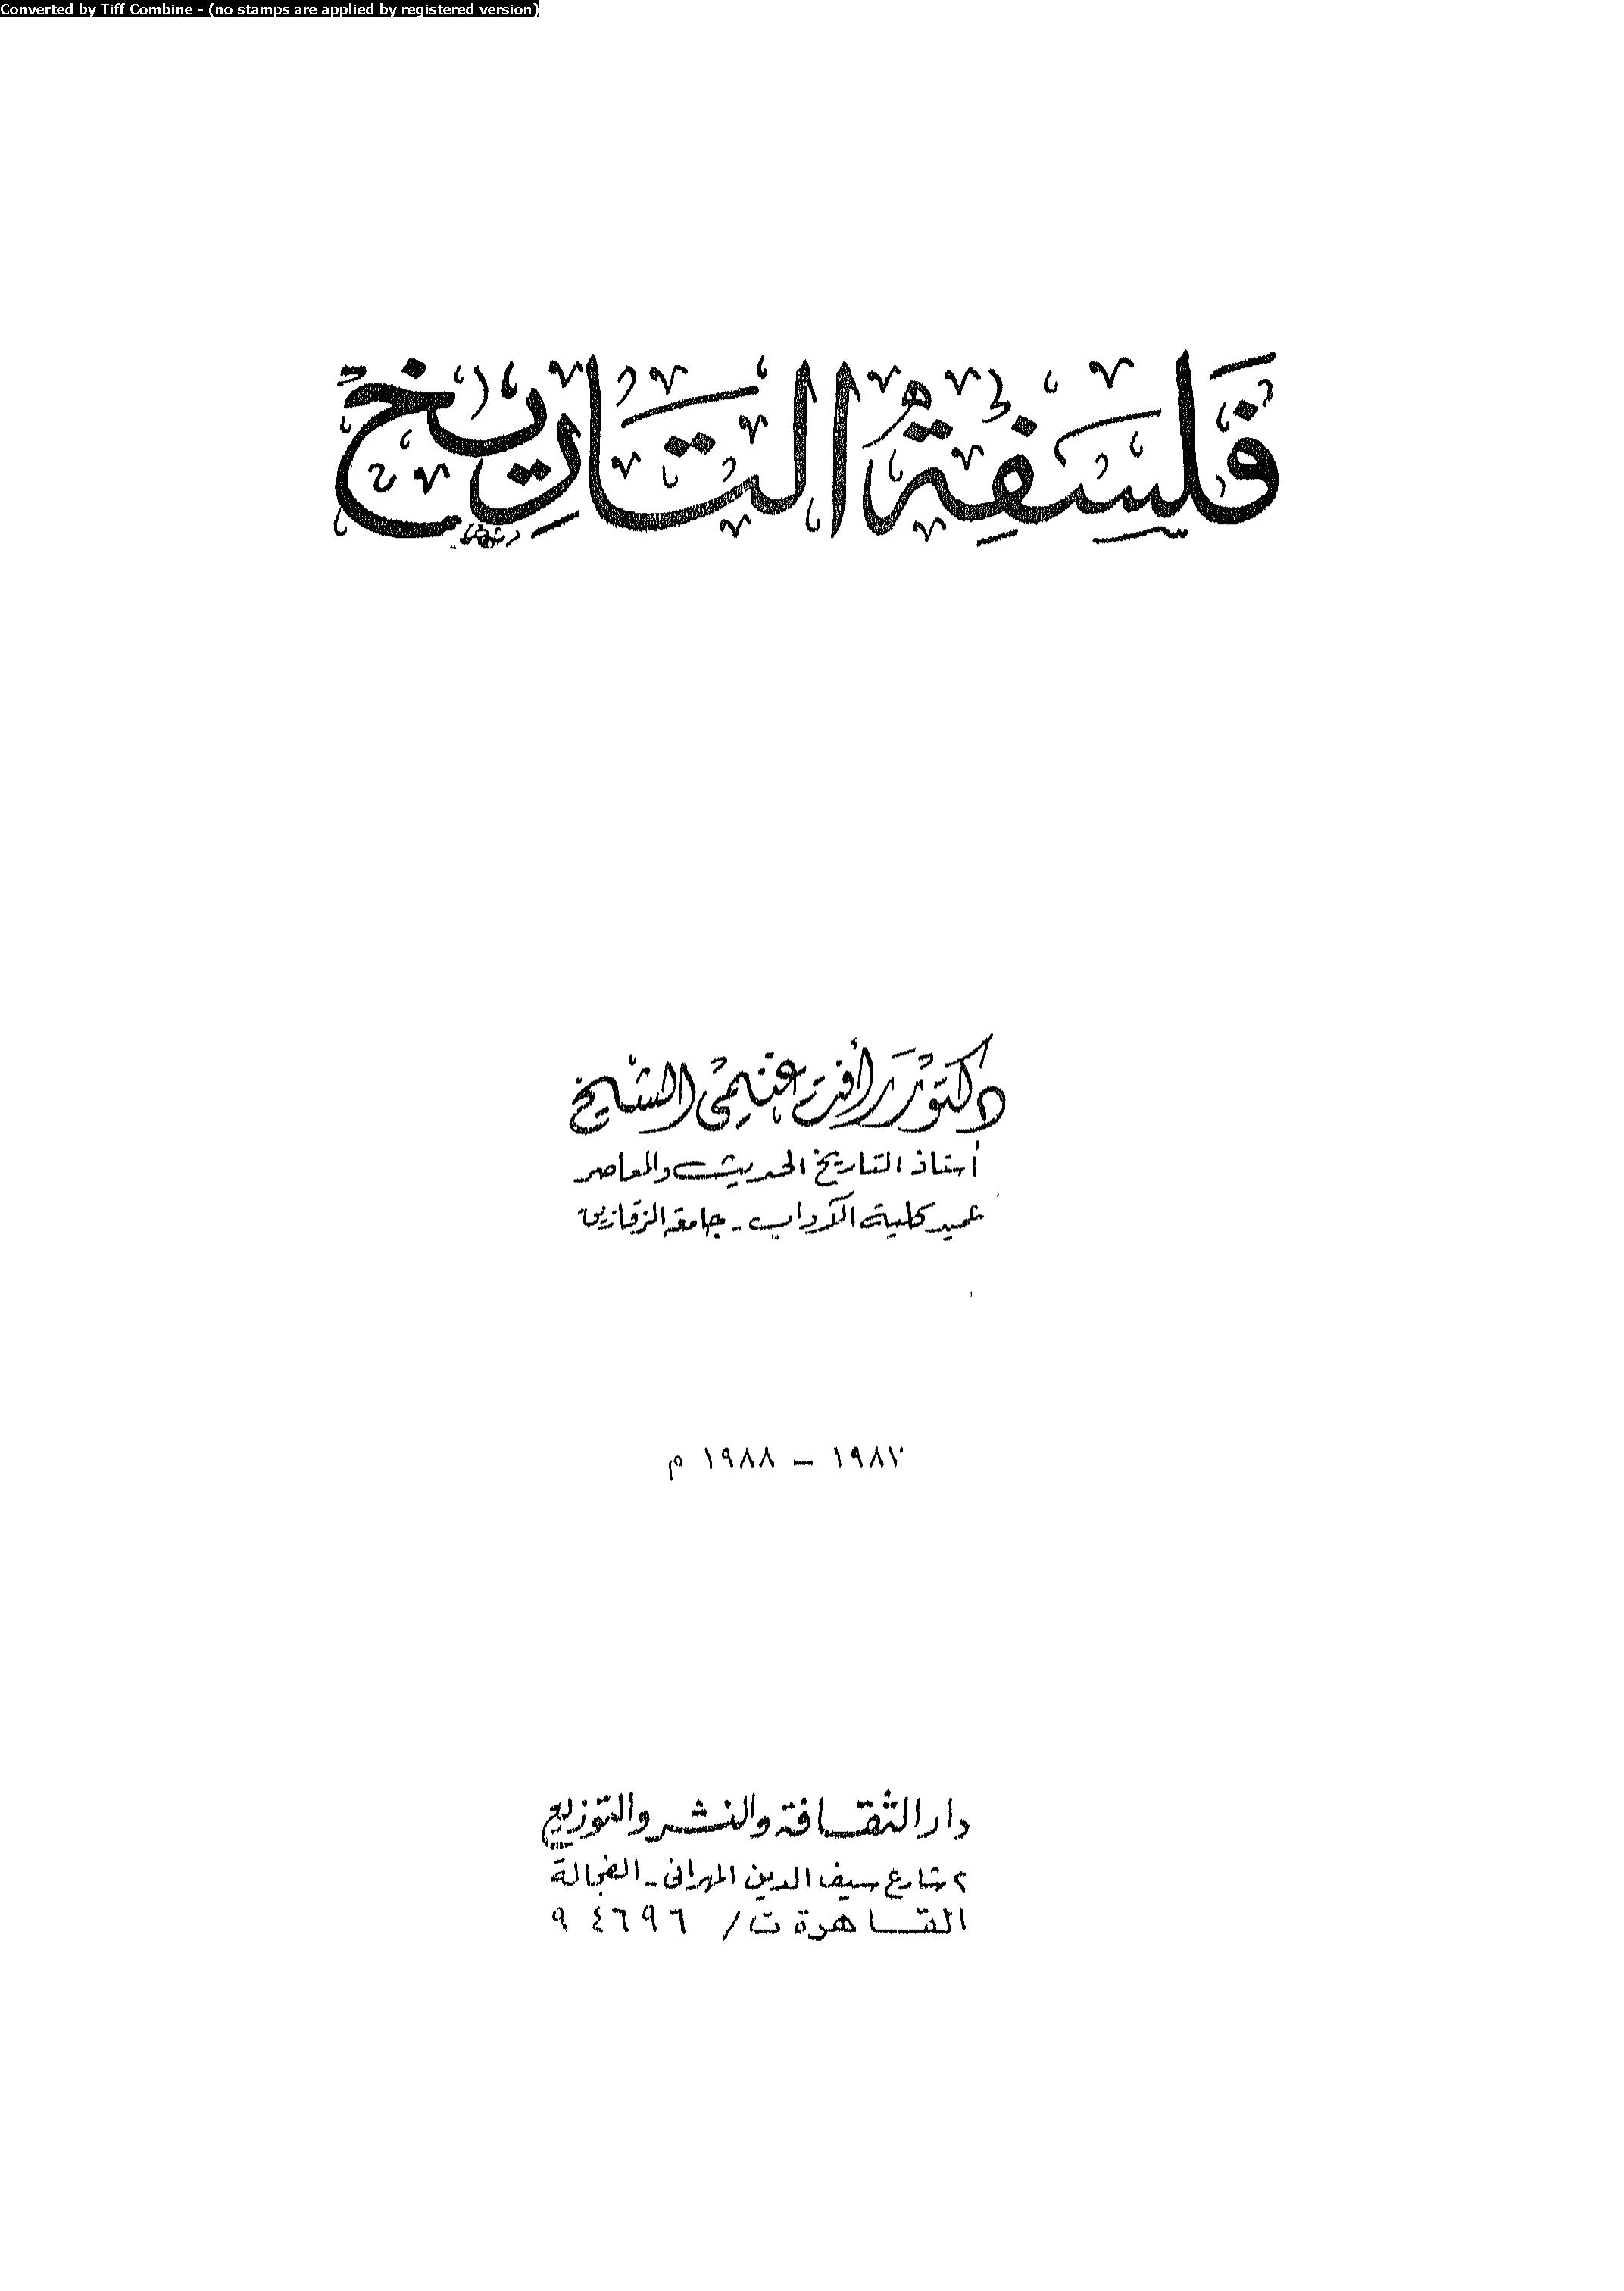 Converted by Tiff Combine - (no stamps are applied by registered version)
فلسفة التاريخ
دكتور رأفت غنيمى الشيخ
أستاذ التاريخ الحديث والمعاصر
عميد كلية الآداب - جامعة الزقازيق
١٩٨٧ - ١٩٨٨ م
دار الثقافة والنشر والتوزيع
٢ شارع سيف الدين المهرانى - الفجالة
القاهرة ت/ ٩٠٤٦٩٦